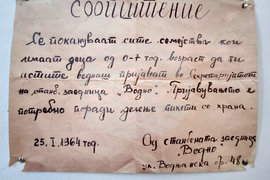 СООПШТЕНИЕ
Се покануваат сите семејства кои
имаат деца од 0-7 год. возраст да ги
истите веднаш пријават во Секретаријатот
на стан. заедница "Водно". Пријавувањето е
потребно поради делење пакети со храна.
25.I.1964 год.
Од станбената заедница
"Водно"
ул. Водњанска бр. 48